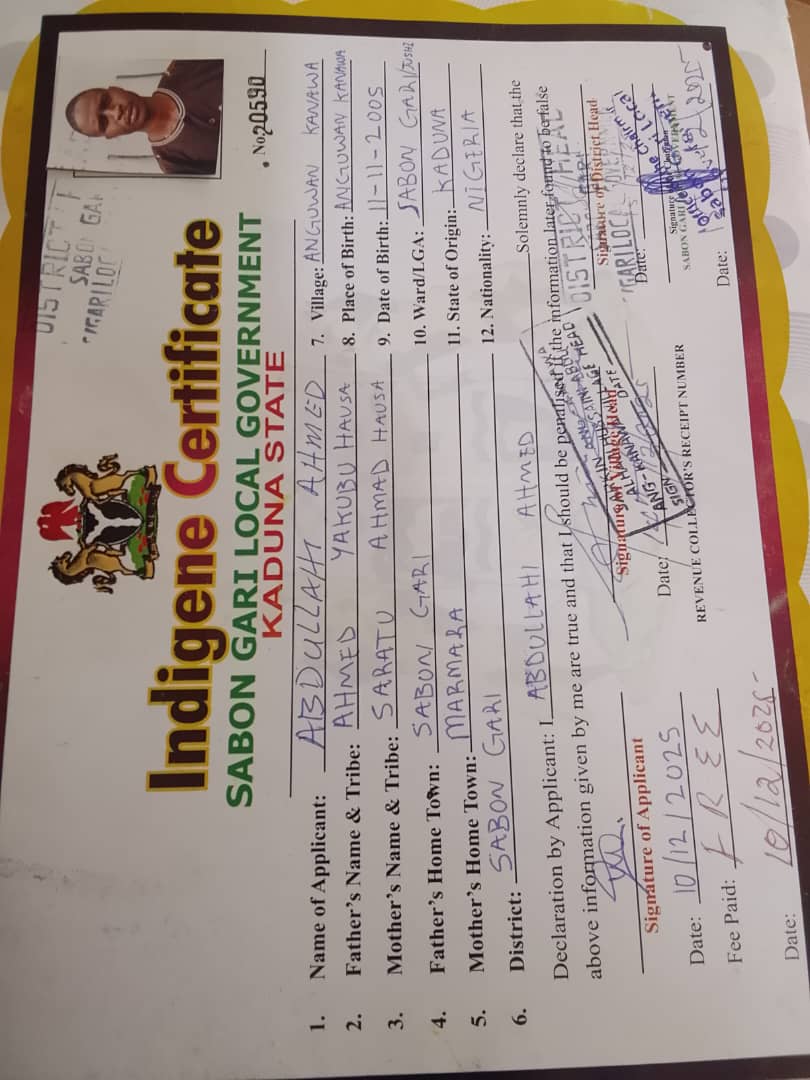 DISTRICT
SABO GA
GARI LOC
No 20590
Indigene Certificate
SABON GARI LOCAL GOVERNMENT
KADUNA STATE
1. Name of Applicant: ABDULLAHI AHMED
2. Father's Name & Tribe: AHMED YAKUBU HAUSA
3. Mother's Name & Tribe: SARATU AHMAD HAUSA
4. Father's Home Town: SABON GARI
5. Mother's Home Town: MARMARA
6. District: SABON GARI
7. Village: ANGUWAN KANAWA
8. Place of Birth: ANGUWAN KANAWA
9. Date of Birth: 11-11-2005
10. Ward/LGA: SABON GARI
11. State of Origin: KADUNA
12. Nationality: NIGERIA
Declaration by Applicant: I ABDULLAHI AHMED Solemnly declare that the
above information given by me are true and that I should be penalised if the information later found to be false
Signature of Applicant
Date: 10/12/2025
Fee Paid: FREE
Date: 10/12/2025
Signature of Village Head
ANG-KANAWA
SIGN DATE
Date:
REVENUE COLLECTOR'S RECEIPT NUMBER
DISTRICT HEAD
Signature of District Head
GARI LOCAL
Date:
Signature
SABON GARI LOCAL GOVERNMENT
Date: